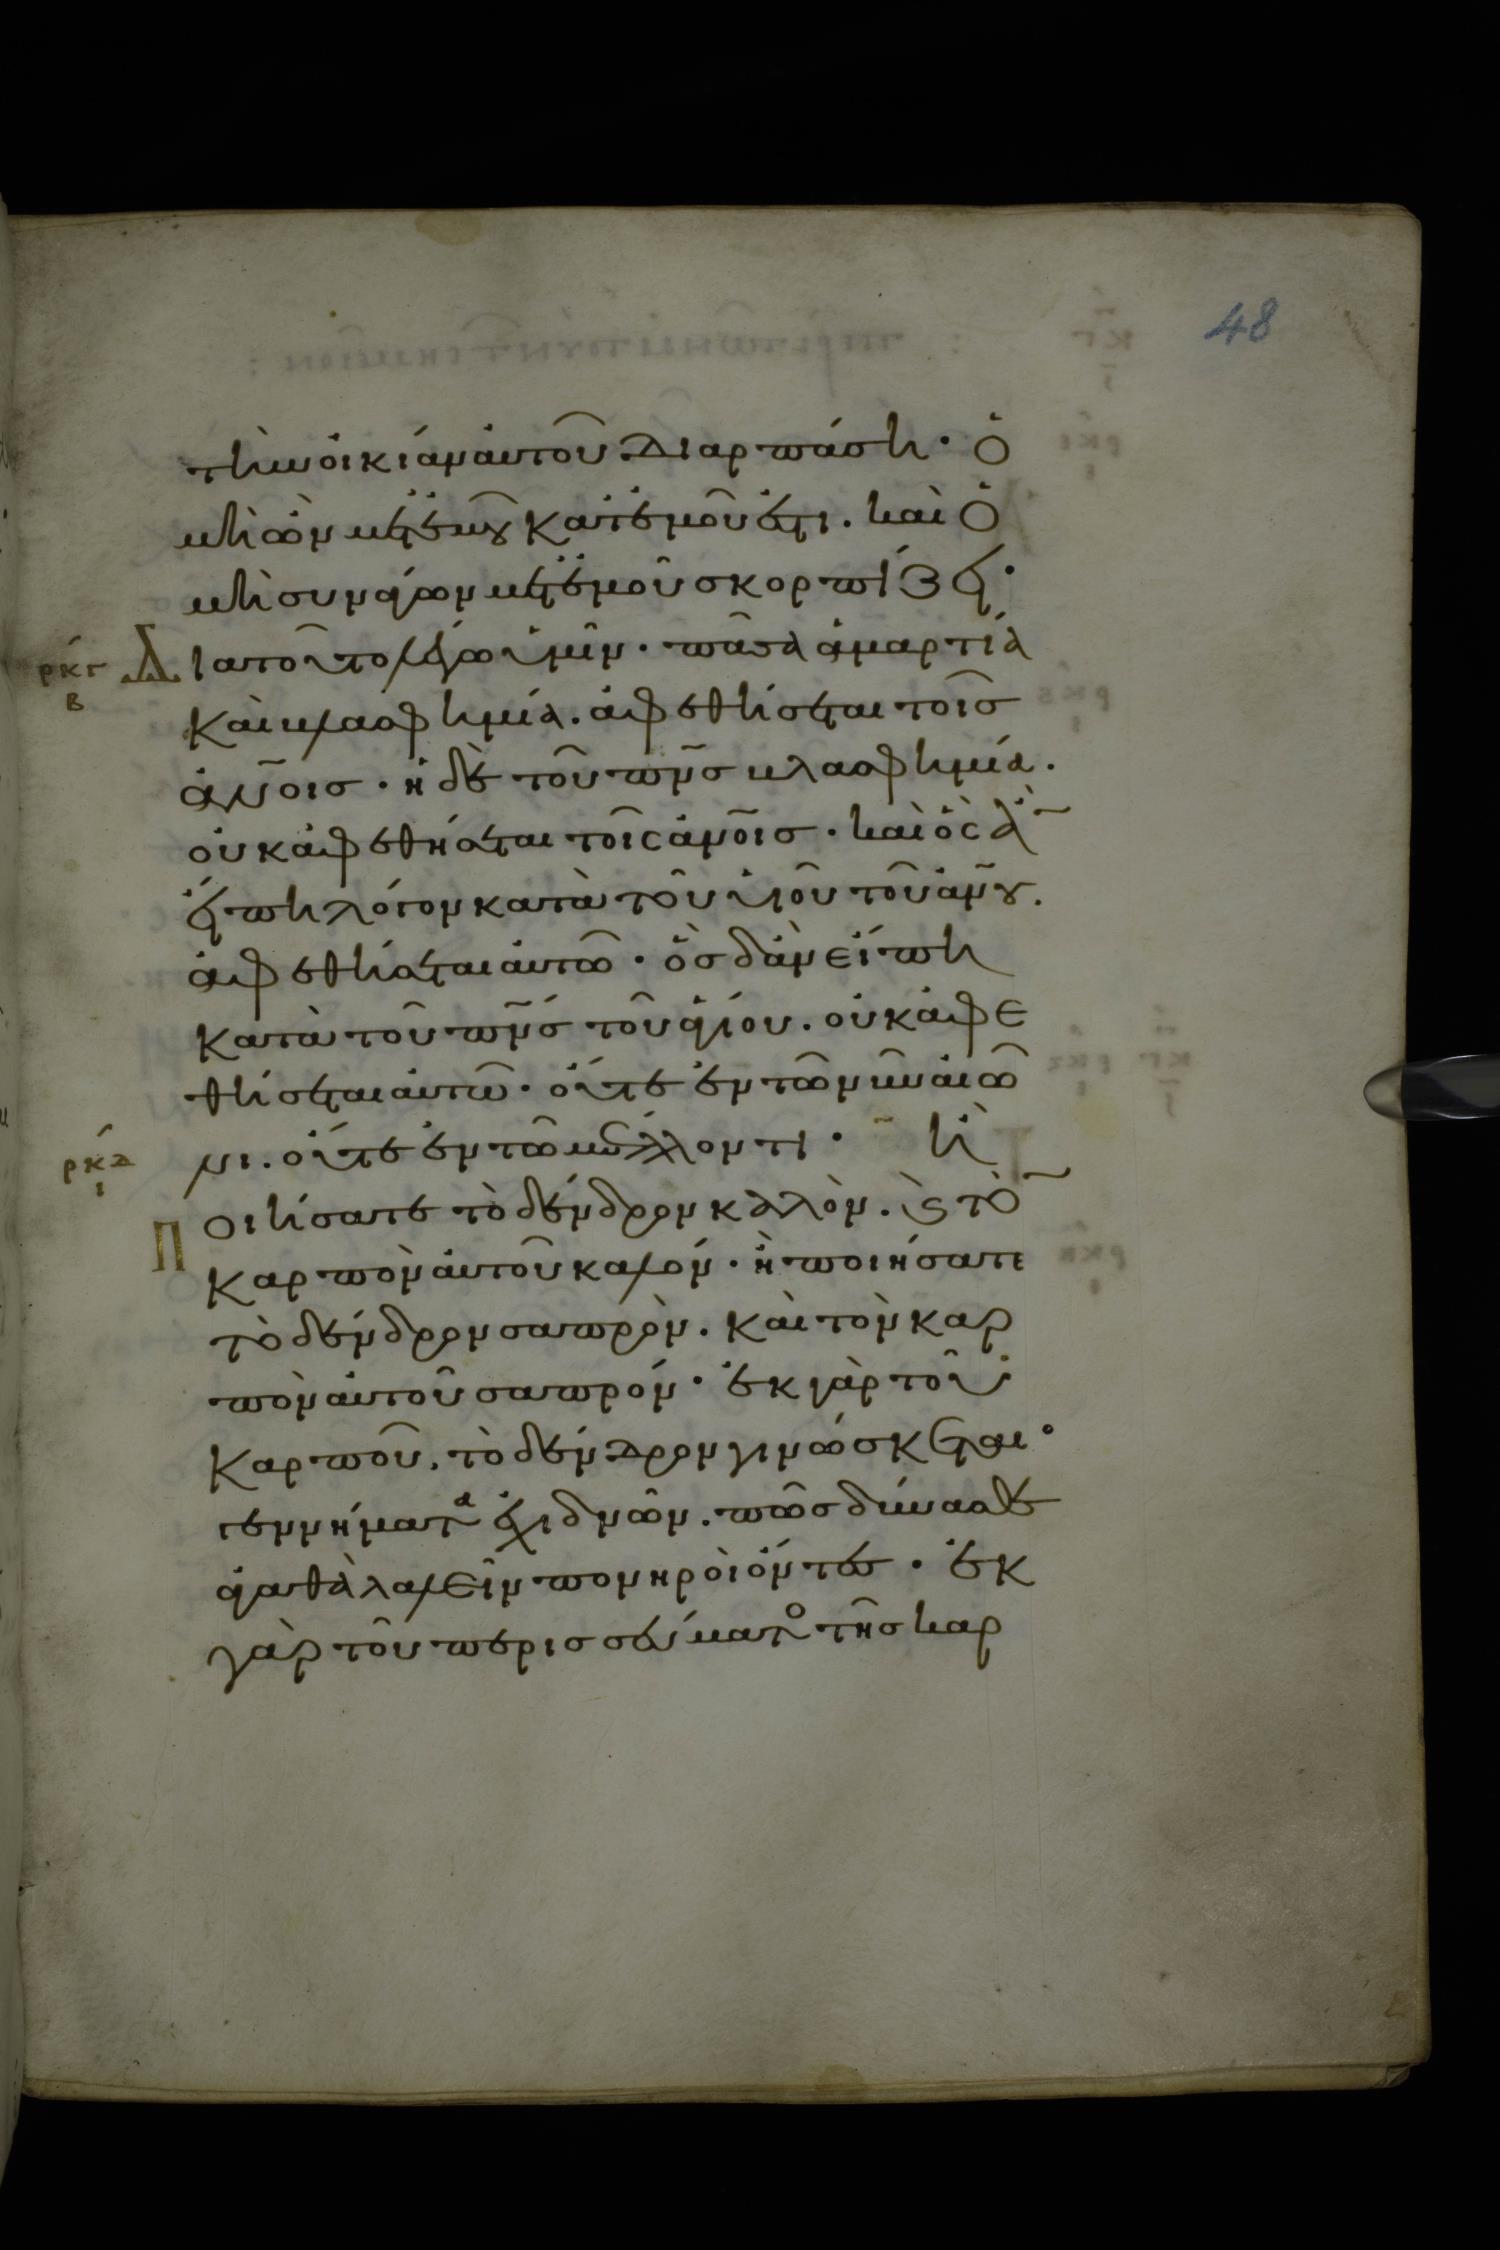 48
τὴν οἰκίαν αὐτοῦ διαρπάση · ὁ
μὴ ὢν μετ ἐμοῦ κατ ἐμοῦ ἐστι . καὶ ὁ
μὴ συνάγων μετ ἐμοῦ σκορπίζει ·
ρκγ Διατοῦτο λέγω ὑμῖν · πᾶσα ἁμαρτία
β
καὶ βλασφημία . ἀφεθήσεται τοῖσ
ἀν̅οισ · ἡ δὲ τοῦ πν̅σ βλασφημία .
οὐκ ἀφεθήσεται τοῖς ἀν̅οισ · καὶ ὃς ἂ̅
εἴπη λόγον κατὰ τοῦ υἱοῦ τοῦ ἀν̅ου .
ἀφεθήσεται αὐτῶ · ὃσ δ ἂν εἴπη
κατὰ τοῦ πν̅σ τοῦ ἁγίου . οὐκ ἀφε
θήσεται αὐτῶ · οὔτε ἐν τῶ νῦν αἰῶ
νι . οὔτε ἐν τῶ μέλλοντι · ἢ
ρκδ
ι
Ποιήσατε τὸ δένδρον καλὸν . ϗ τὸ̅
καρπὸν αὐτοῦ καλόν · ἢ ποιήσατε
τὸ δένδρον σαπρὸν . καὶ τὸν καρ
πὸν αὐτοῦ σαπρόν · ἐκ γὰρ τοῦ
καρποῦ . τὸ δένδρον γινώσκεται ·
γεννήματα ἐχιδνῶν . πῶσ δύνασθε
ἀγαθὰ λαλεῖν πονηροὶ ὄντεσ · ἐκ
γὰρ τοῦ περισσεύματο τῆσ καρ